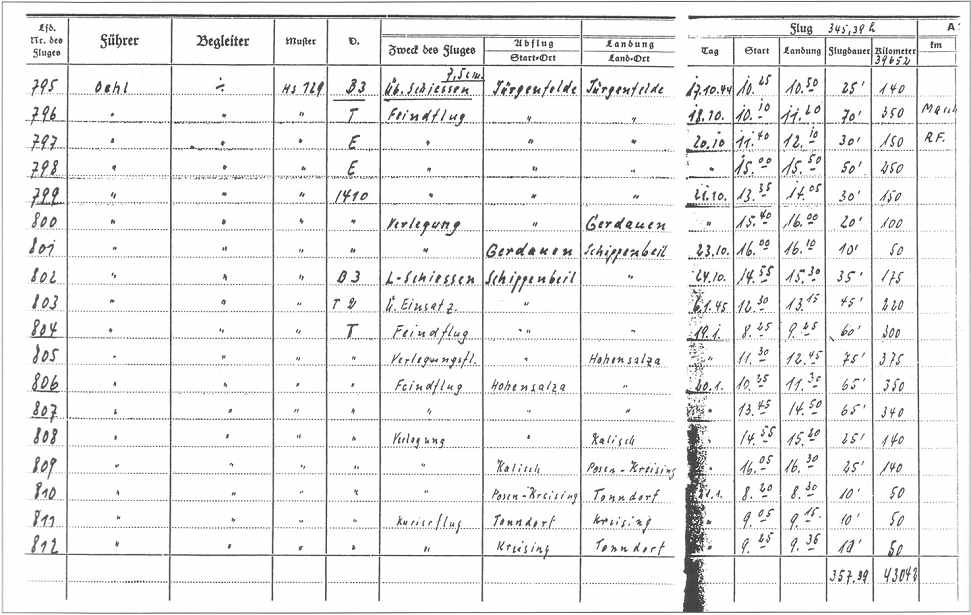 Lfd. Nr. des Fluges Führer Begleiter Muster Zweck des Fluges Abflug Start-Ort Landung Land-Ort Flug 345,39 h Tag Start Landung Flugdauer Kilometer 39652 km
795 Oehl ÷ Hs 129 B3 Üb. Schiessen 7,5 cm. Jürgenfelde Jürgenfelde 17.10.44 10.25 10.50 25' 140
796 " " " T Feindflug " " 18.10. 10.10 11.20 70' 350
797 " " " E " " " 20.10 11.40 12.10 30' 150 R.F.
798 " " " E " " " " 15.00 15.50 50' 250
799 " " " 1410 " " " 21.10. 13.35 14.05 30' 150
800 " " " " Verlegung " Gerdauen " 15.40 16.00 20' 100
801 " " " " " Gerdauen Schippenbeil 23.10. 16.00 16.10 10' 50
802 " " " B3 L-Schiessen Schippenbeil " 24.10. 14.55 15.30 35' 175
803 " " " Ü. Einsatz. " 6.1.45 12.30 13.15 45' 220
804 " " " T Feindflug " " 19.1. 8.25 9.25 60' 300
805 " " " " Verlegungsfl. " Hohensalza " 11.30 12.45 75' 375
806 " " " " Feindflug Hohensalza " 20.1. 10.25 11.30 65' 350
807 " " " " " " " " 13.45 14.50 65' 340
808 " " " " Verlegung " Kalisch " 14.55 15.20 25' 140
809 " " " " " Kalisch Posen-Kreising " 16.05 16.30 25' 140
810 " " " " Posen-Kreising Tonndorf 21.1. 8.20 8.30 10' 50
811 " " " " Kurierflug Tonndorf Kreising " 9.05 9.15 10' 50
812 " " " " " Kreising Tonndorf " 9.25 9.35 10' 50
357,39 43042